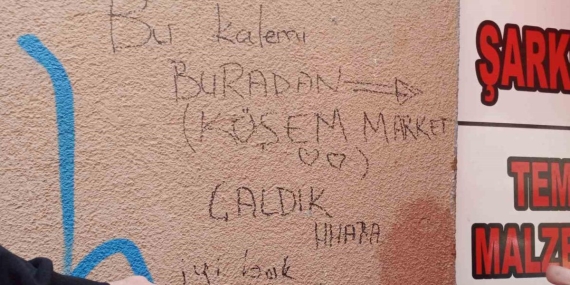 Bu kalemi
BURADAN →
(KÖŞEM MARKET
♡♡)
ÇALDIK
HHAHA
iyi
ŞARK
TEM
MALZE